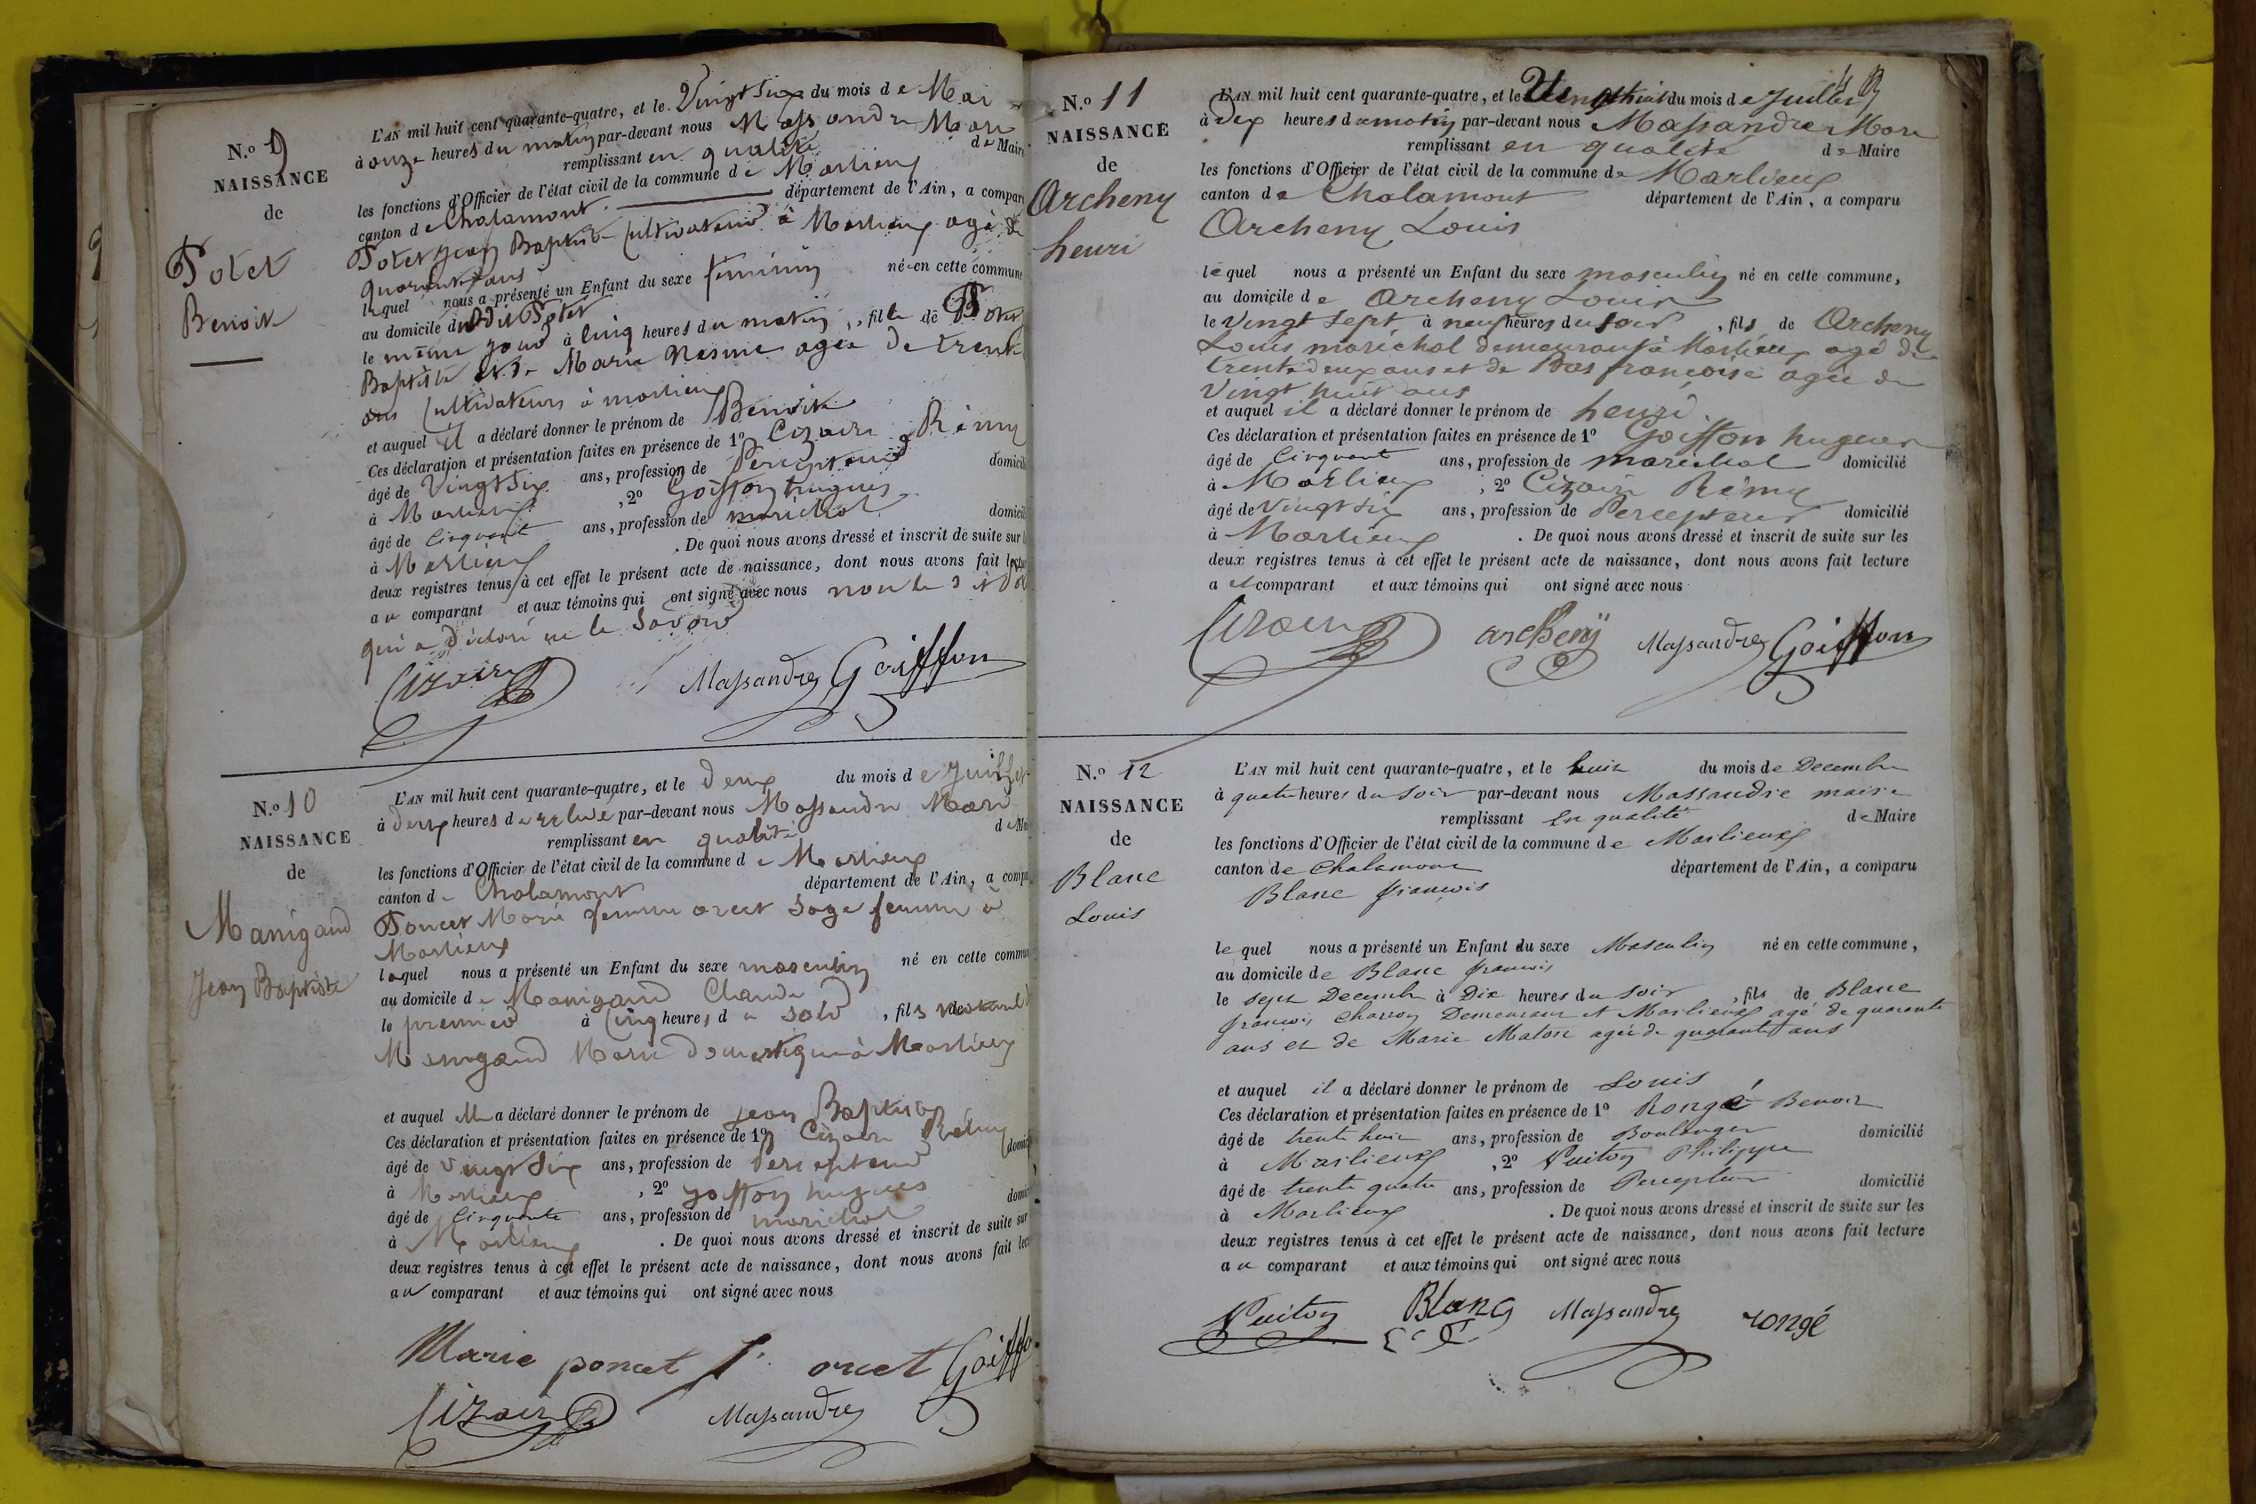 N.o 9
NAISSANCE
de
Potet
Benoit
L'AN mil huit cent quarante-quatre, et le Vingt Six du mois de Mai
à onze heures du matin par-devant nous Massandre Mare
remplissant en qualité de Maire
les fonctions d'Officier de l'état civil de la commune de Marlieux
canton de Chalamont département de l'Ain, a comparu
Potet Jean Baptiste Cultivateur à Marlieux agé de
quarante ans
lequel nous a présenté un Enfant du sexe féminin né en cette commune
au domicile du dit Potet
le même jour à Cinq heures du matin, fille de Potet
Baptiste et de Marie Nesme agée de trente
ans Cultivateurs à marlieux
et auquel il a déclaré donner le prénom de Benoite
Ces déclaration et présentation faites en présence de 1o Cizaire Rémy
âgé de Vingt Six ans, profession de Percepteur domicilié
à Marlieux , 2o Goiffon hugues
âgé de Cinquante ans, profession de maréchal domicilié
à Marlieux . De quoi nous avons dressé et inscrit de suite sur les
deux registres tenus à cet effet le présent acte de naissance, dont nous avons fait lecture
au comparant et aux témoins qui ont signé avec nous non le
qui a déclaré ne le Savoir
Cizaire Massandre Goiffon
N.o 10
NAISSANCE
de
Manigand
Jean Baptiste
L'AN mil huit cent quarante-quatre, et le deux du mois de Juillet
à deux heures de relevé par-devant nous Massandre Mare
remplissant en qualité de Maire
les fonctions d'Officier de l'état civil de la commune de Marlieux
canton de Chalamont département de l'Ain, a comparu
Poncet Marie femme orcet Sage femme à
Marlieux
laquel nous a présenté un Enfant du sexe masculin né en cette commune
au domicile de Manigand Claude
le premier à Cinq heures du Soir , fils naturel de
Manigand Marie domestique à Marlieux
et auquel elle a déclaré donner le prénom de Jean Baptiste
Ces déclaration et présentation faites en présence de 1o Cizaire Rémy
âgé de Vingt Six ans, profession de Percepteur domicilié
à Marlieux , 2o goiffon hugues
âgé de Cinquante ans, profession de maréchal domicilié
à Marlieux . De quoi nous avons dressé et inscrit de suite sur
deux registres tenus à cet effet le présent acte de naissance, dont nous avons fait lecture
au comparant et aux témoins qui ont signé avec nous
Marie poncet f. orcet Goiffon
Cizaire Massandre
N.o 11
NAISSANCE
de
Archeny
henri
L'AN mil huit cent quarante-quatre, et le Vingt huit du mois de Juillet
à Dix heures du matin par-devant nous Massandre Mare
remplissant en qualité de Maire
les fonctions d'Officier de l'état civil de la commune de Marlieux
canton de Chalamont département de l'Ain, a comparu
Archeny Louis
lequel nous a présenté un Enfant du sexe masculin né en cette commune,
au domicile de Archeny Louis
le Vingt Sept à neuf heures du Soir , fils de Archeny
Louis maréchal demeurant à Marlieux agé de
trente deux ans et de Bas françoise agée de
Vingt huit ans
et auquel il a déclaré donner le prénom de henri
Ces déclaration et présentation faites en présence de 1o Goiffon hugues
âgé de Cinquante ans, profession de maréchal domicilié
à Marlieux , 2o Cizaire Rémy
âgé de Vingt Six ans, profession de Percepteur domicilié
à Marlieux . De quoi nous avons dressé et inscrit de suite sur les
deux registres tenus à cet effet le présent acte de naissance, dont nous avons fait lecture
a et comparant et aux témoins qui ont signé avec nous
Cizaire archeny Massandre Goiffon
N.o 12
NAISSANCE
de
Blanc
Louis
L'AN mil huit cent quarante-quatre, et le huit du mois de Decembre
à quatre heures du Soir par-devant nous Massandre maire
remplissant En qualité de Maire
les fonctions d'Officier de l'état civil de la commune de Marlieux
canton de Chalamont département de l'Ain, a comparu
Blanc françois
lequel nous a présenté un Enfant du sexe Masculin né en cette commune,
au domicile de Blanc françois
le sept Decembre à Dix heures du Soir , fils de Blanc
françois Charron Demeurant à Marlieux agé de quarante
ans et de Marie Maton agée de quarante ans
et auquel il a déclaré donner le prénom de Louis
Ces déclaration et présentation faites en présence de 1o Rongé Benoit
âgé de trente huit ans, profession de Boulanger domicilié
à Marlieux , 2o Vuiton Philippe
âgé de trente quatre ans, profession de Percepteur domicilié
à Marlieux . De quoi nous avons dressé et inscrit de suite sur les
deux registres tenus à cet effet le présent acte de naissance, dont nous avons fait lecture
au comparant et aux témoins qui ont signé avec nous
Vuiton Blanc Massandre rongé